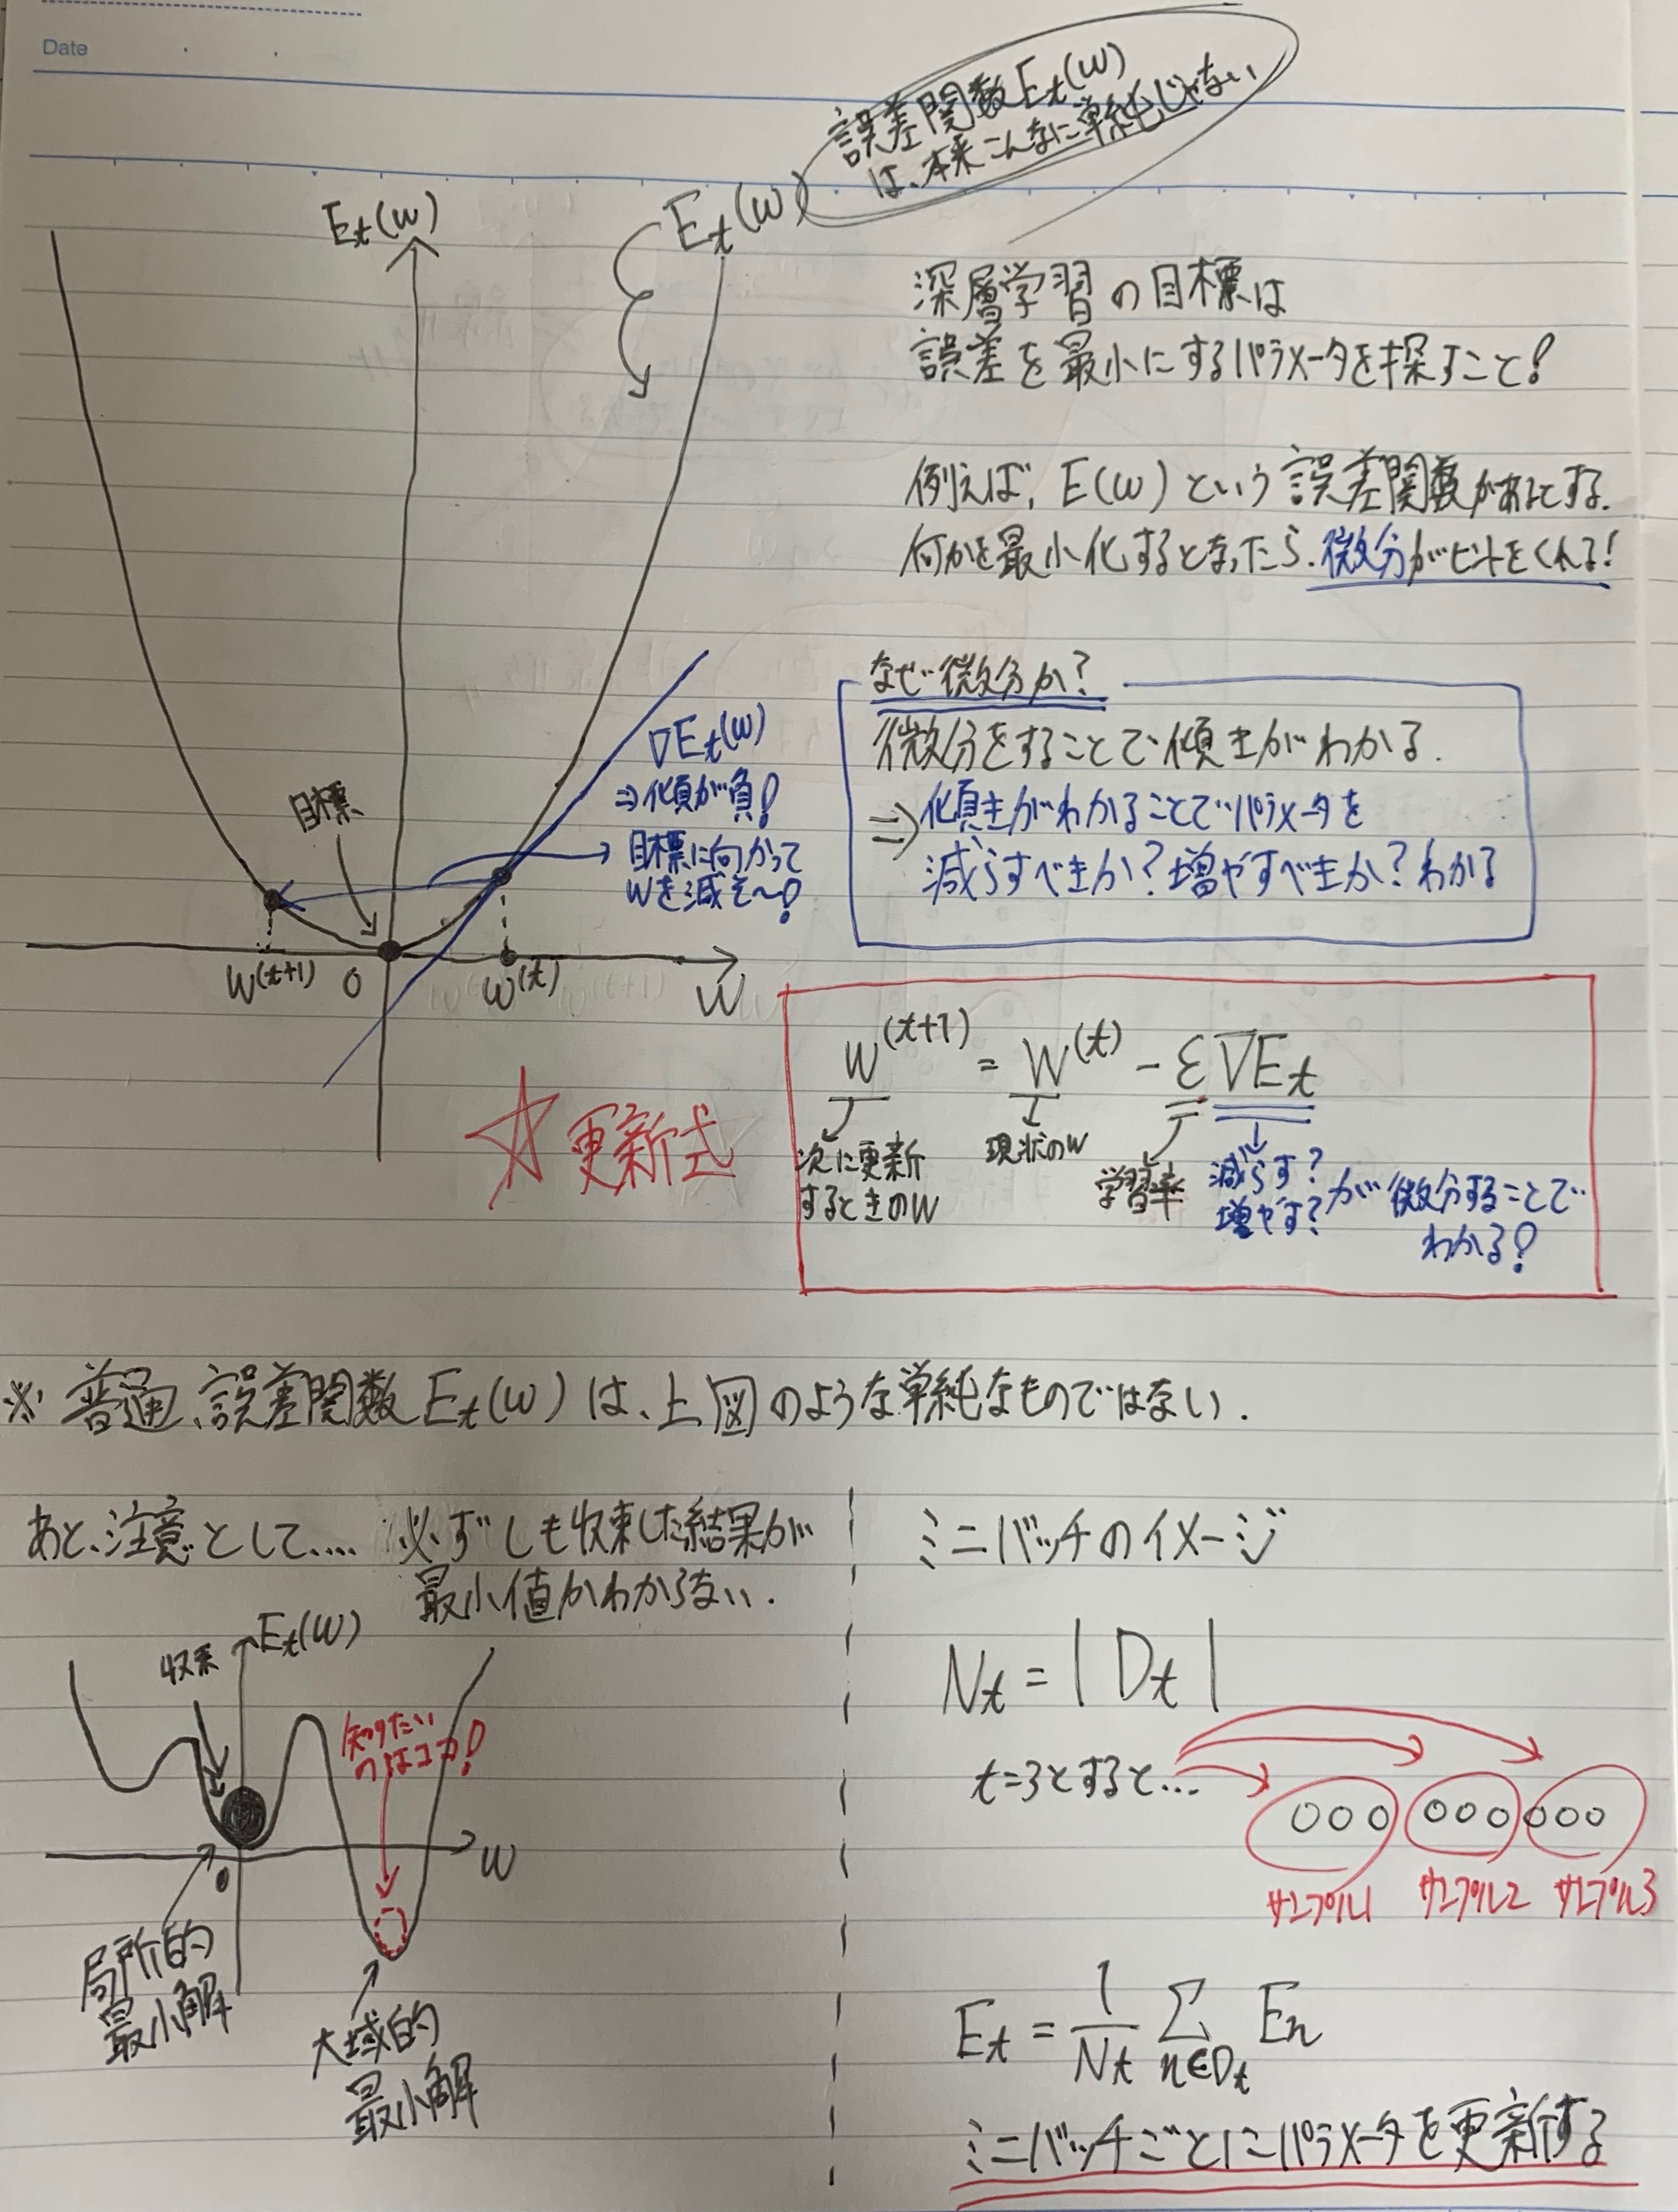 Date
誤差関数Et(w)
は、本来こんなに単純じゃない
Et(w)
Et(w)
深層学習の目標は
誤差を最小にするパラメータを探すこと!
例えば、E(w)という誤差関数があるとする.
何かを最小化するとなったら.微分がヒントをくれる!
なぜ微分か?
微分をすることで傾きがわかる.
⇒傾きがわかることでパラメータを
減らすべきか?増やすべきか?わかる
∇Et(w)
⇒傾が負!
目標に向かって
Wを減そ〜!
目標
W(t+1)
0
w(t)
W
☆更新式
W(t+1) = W(t) - ε∇Et
次に更新
するときのW
現状のW
学習率
減らす?
増やす?
が微分することで
わかる!
※普通、誤差関数Et(w)は、上図のような単純なものではない.
あと、注意として....必ずしも収束した結果が
最小値かわからない.
収束
Et(w)
知りたい
のはココ!
w
0
局所的
最小解
大域的
最小解
ミニバッチのイメージ
Nt = |Dt|
t=3とすると...
○○○ ○○○ ○○○
サンプル1 サンプル2 サンプル3
Et = 1/Nt Σ n∈Dt En
ミニバッチごとにパラメータを更新する